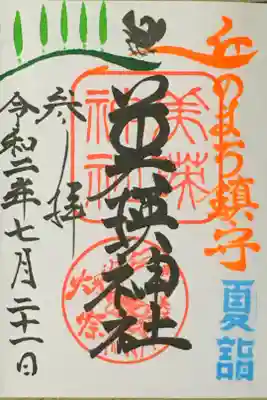 丘のまち鎮守
夏詣
美瑛神社
参拝
令和二年七月二十一日